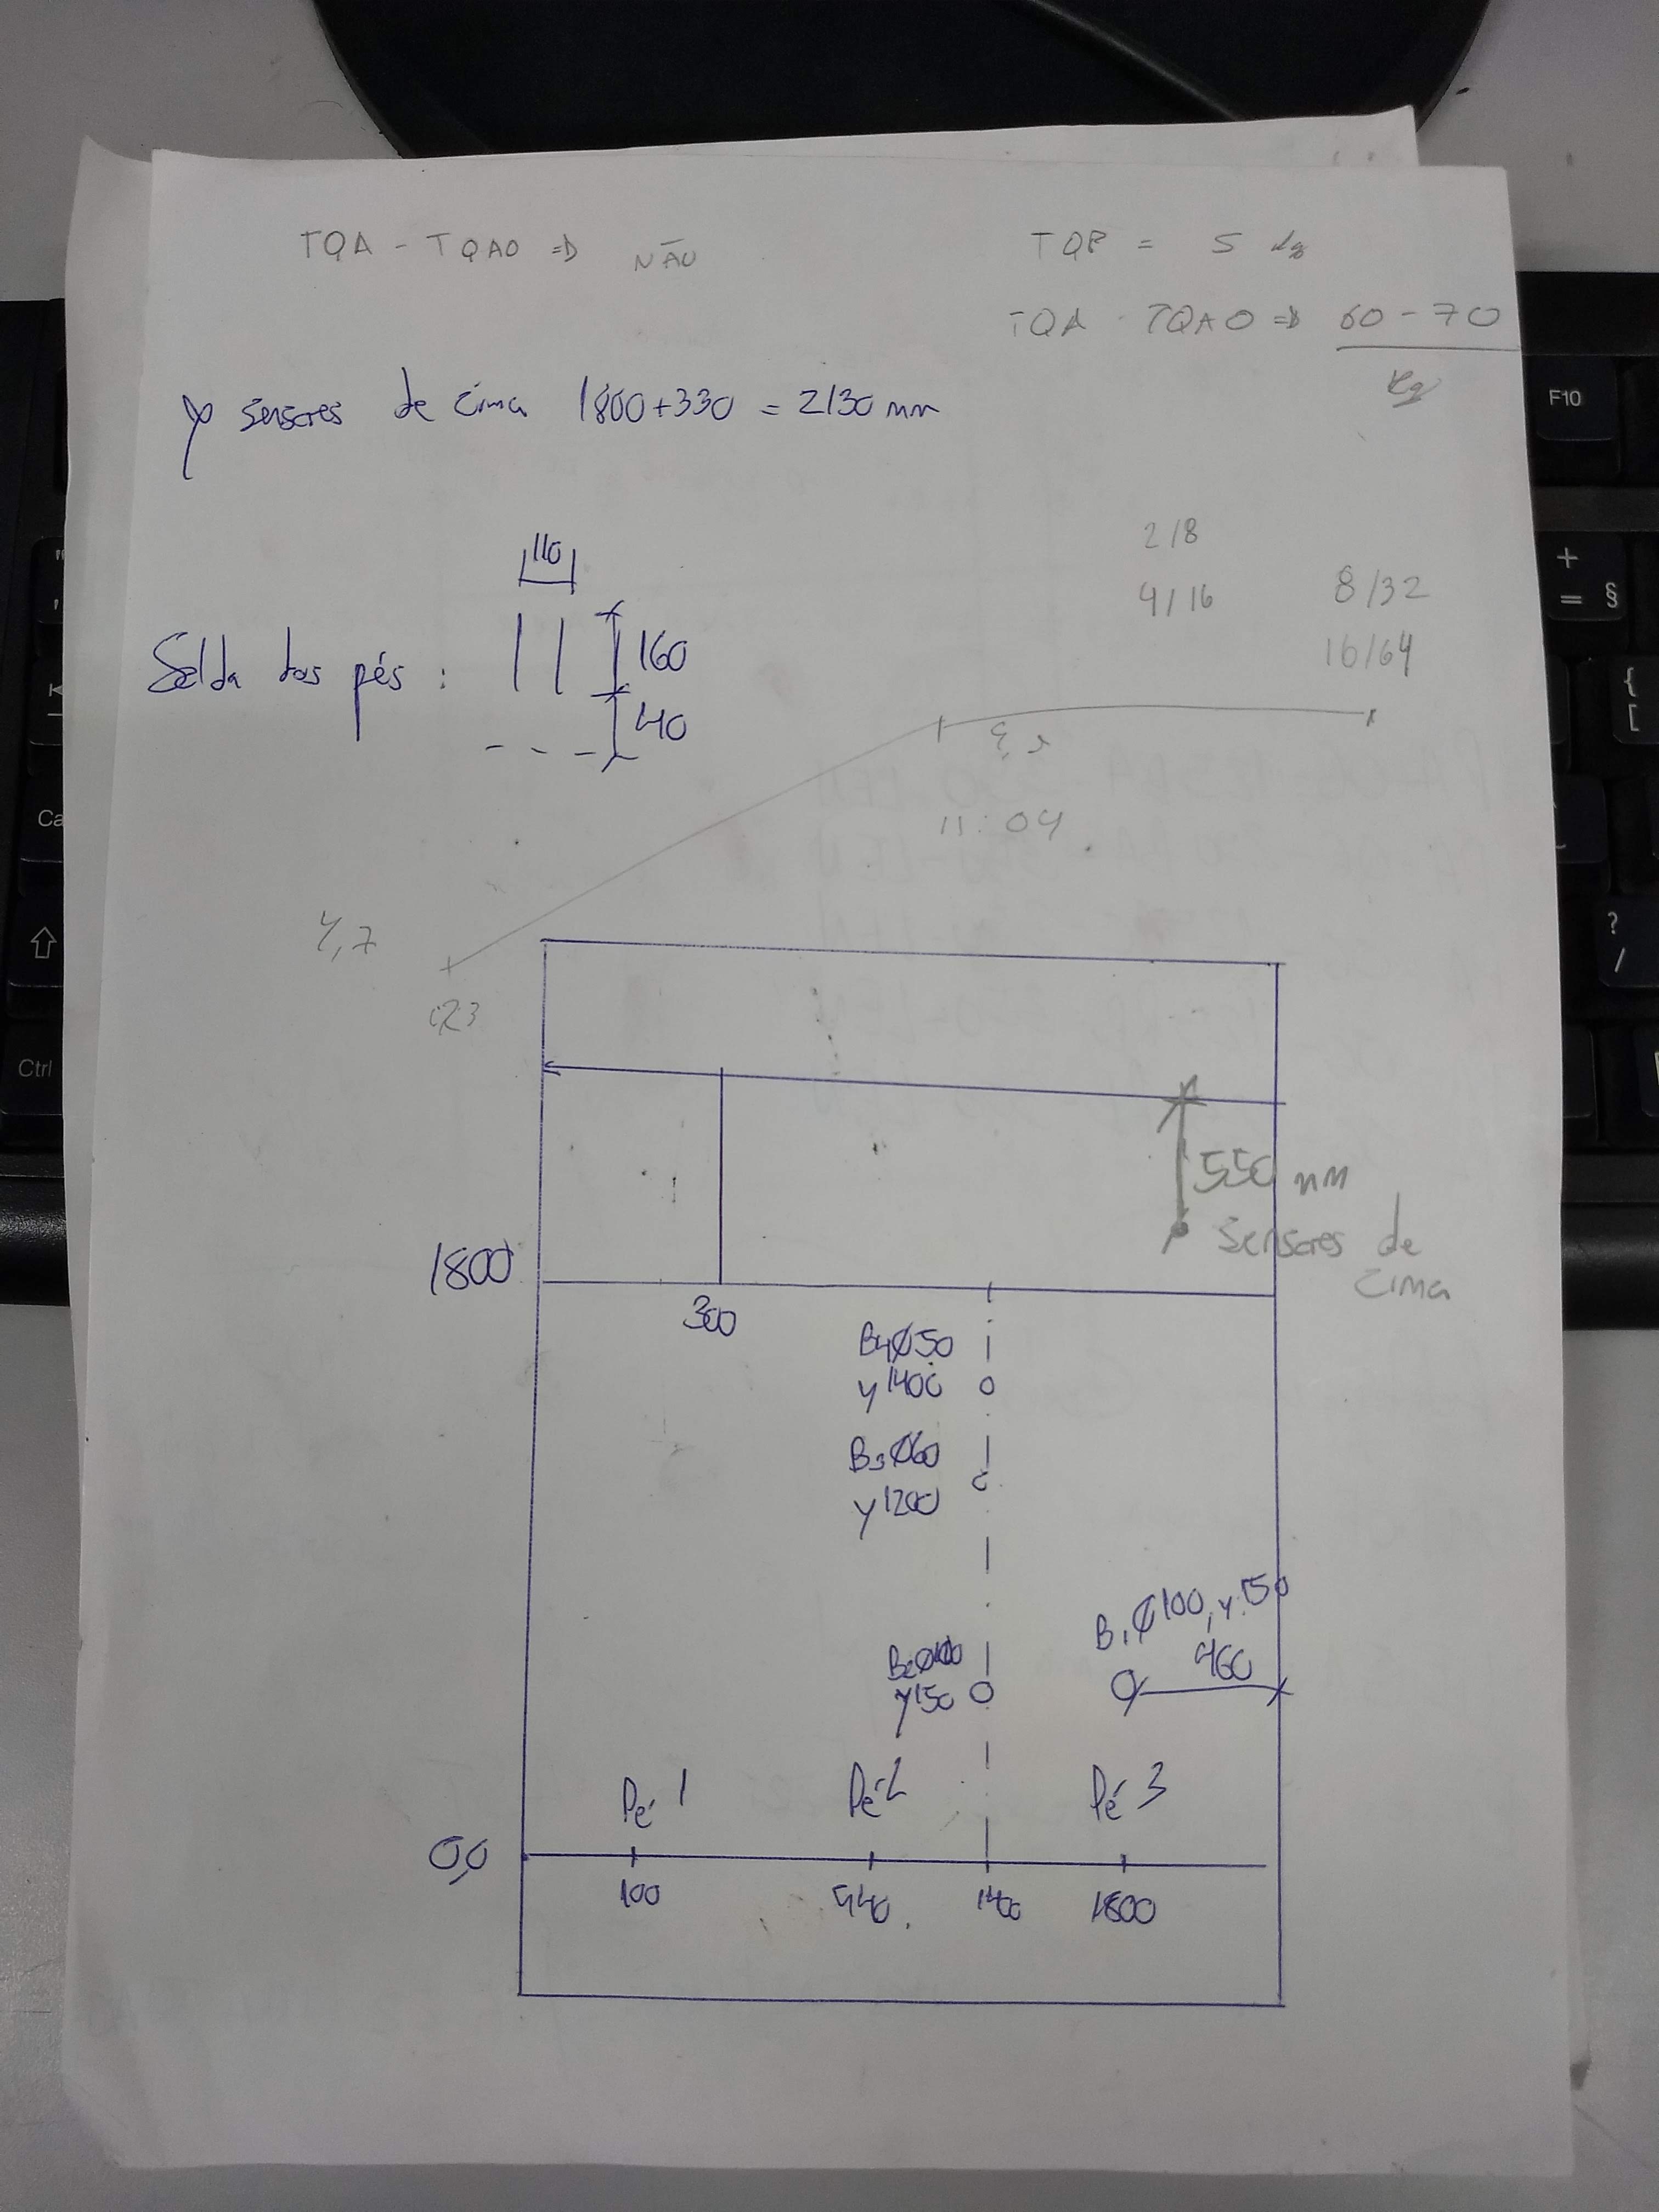 TQA - TQAO => NÃO
TQB = 5 kg
TQA - TQAO => 60 - 70
kg
y sensores de cima 1800+330 = 2130 mm
2/8
4/16
8/32
16/64
110
Solda dos pés :
160
40
11:04
4,7
1800
300
550 mm
Sensores de
cima
B4Ø50
y1400
B3Ø60
y1200
B1Ø100, y.150
460
B2Ø100
y150
Pé 1
Pé 2
Pé 3
0,0
100
940
1400
1800
F10
+
= §
{
[
?
/
K
Ca
Ctrl